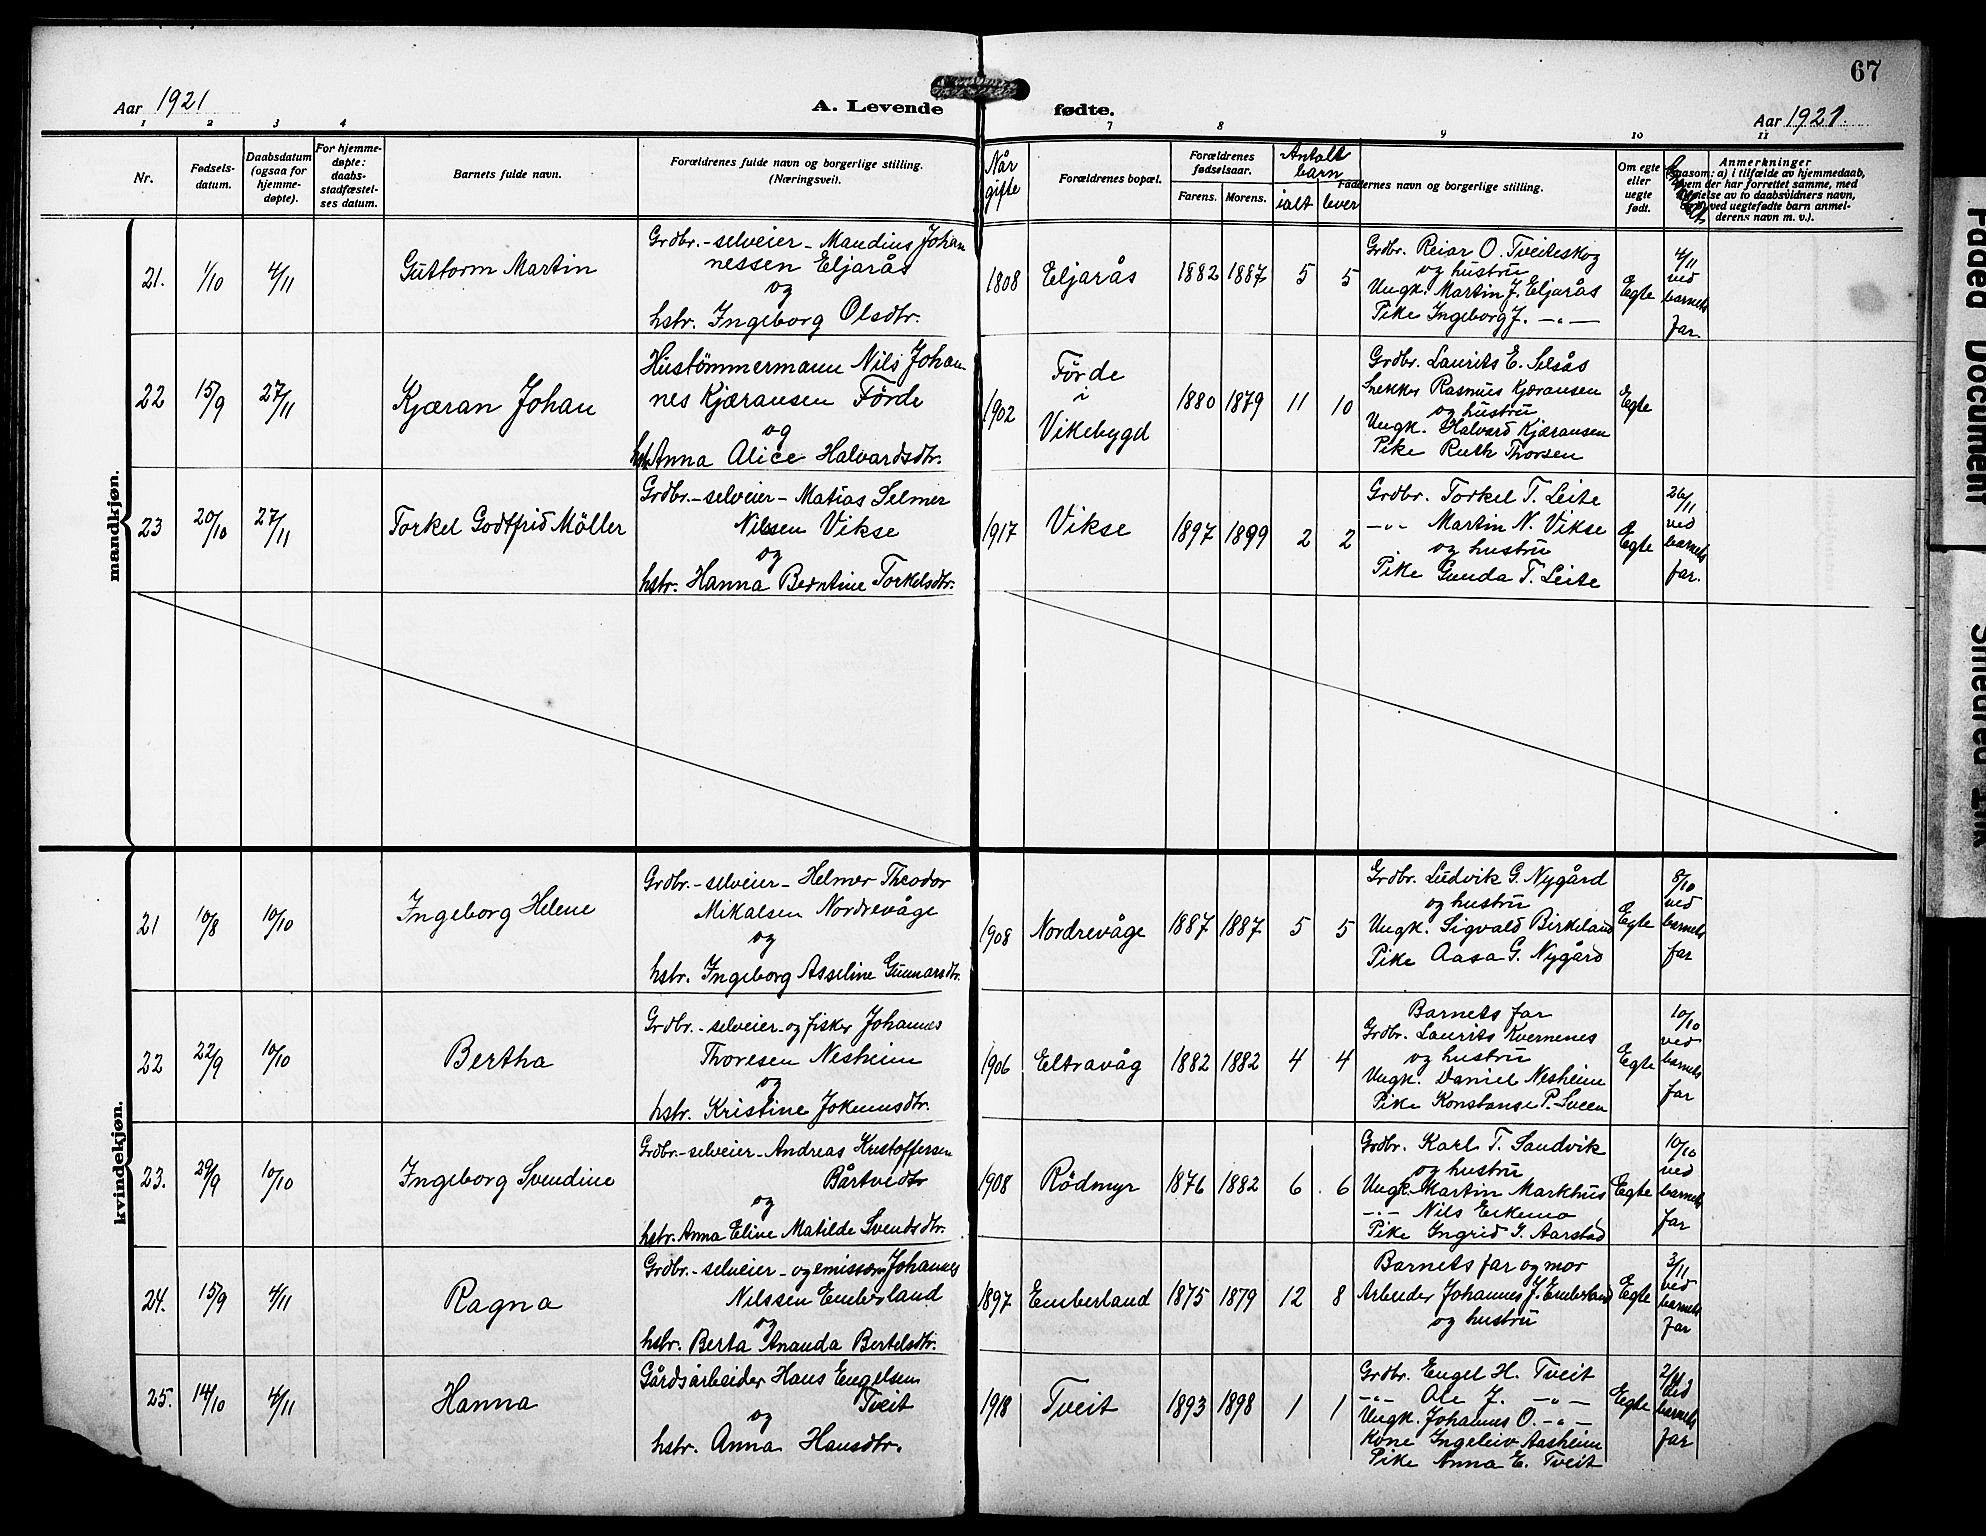 67
Aar 1921
A. Levende
fødte.
Aar 1921.
1 2 3 4 7 8 9 10 11
Nr.
Fødsels-
datum.
Daabsdatum
(ogsaa for
hjemme-
døpte).
For hjemme-
døpte:
daabs-
stadfæstel-
ses datum.
Barnets fulde navn.
Forældrenes fulde navn og borgerlige stilling.
(Næringsvei).
Når
gifte
Forældrenes bopæl.
Forældrenes
fødselsaar.
Farens. Morens.
Antall
barn
ialt lever
Faddernes navn og borgerlige stilling.
Om egte
eller
uegte
født.
Anmerkninger
a) i tilfælde av hjemmedaab,
hvem der har forrettet samme, med
av to daabsvidners navn,
ved uegtefødte barn anmel-
derens navn m. v.).
mandkjøn.
21. 1/10 4/11 Guttorm Martin
Grdbr.-selveier- Mandius Johan
nessen Eljarås
og
hstr. Ingeborg Olsdtr.
1808 Eljarås 1882 1887 5 5
Grdbr. Reiar O. Tveiteskog
og hustru
Ungk. Martin J. Eljarås
Pike Ingeborg J. -„-
Egte
4/11
ved
barnets
far.
22 15/9 27/11 Kjæran Johan
Hustømmermann Nils Johan
nes Kjæransen Førde
og
hstr. Anna Alice Halvardsdtr.
1902
Førde
i
Vikebygd
1880 1879 11 10
Grdbr. Laurits E. Selsås
Snekker Rasmus Kjæransen
og hustru
Ungk. Halvard Kjæransen
Pike Ruth Thorsen
Egte
23 20/10 27/11 Torkel Godtfrid Möller
Grdbr.-selveier- Matias Selmer
Nilsen Vikse
og
hstr. Hanna Berntine Torkelsdtr.
1917 Vikse 1897 1899 2 2
Grdbr. Torkel T. Leite
-„- Martin N. Vikse
og hustru
Pike Gunda T. Leite
Egte
26/11
ved
barnets
far.
kvindekjøn.
21 10/8 10/10 Ingeborg Helene
Grdbr.-selveier- Helmer Theodor
Mikalsen Nordrevåge
og
hstr. Ingeborg Asseline Gunnarsdtr.
1908 Nordrevåge 1887 1887 5 5
Grdbr. Ludvik G. Nygård
og hustru
Ungk. Sigvald Birkeland
Pike Aasa G. Nygård
Egte
8/10
ved
barnets
far
22 22/9 10/10 Bertha
Grdbr.-selveier-og fisker Johannes
Thoresen Nesheim
og
hstr. Kristine Jokumsdtr.
1906 Eltravåg 1882 1882 4 4
Barnets far
Grdbr. Laurits Kvernenes
og hustru
Ungk. Daniel Nesheim
Pike Konstanse P. Sveen
Egte
10/10
ved
barnets
far
23. 29/9 10/10 Ingeborg Svendine
Grdbr.-selveier-Andreas Kristoffersen
Bårtvedtr
og
hstr. Anna Eline Matilde Svendsdtr.
1908 Rödmyr 1876 1882 6 6
Grdbr. Karl T. Sandvik
og hustru
Ungk. Martin Markhus
-„- Nils Erkemo
Pike Ingrid G. Aarstad
Egte
10/10
ved
barnets
far
24. 15/9 4/11 Ragna
Grdbr.-selveier-og emissær Johannes
Nilssen Emberland
og
hstr. Berta Ananda Bertelsdtr.
1897 Emberland 1875 1879 12 8
Barnets far og mor
Arbeider Johannes J. Emberland
og hustru
Egte
3/11
ved
barnets
far
25. 14/10 4/11 Hanna
Gårdsarbeider Hans Engelsen
Tveit
og
hstr. Anna Hansdtr.
1918 Tveit 1893 1898 1 1
Grdbr. Engel H. Tveit
-„- Ole J. -„-
Ungk. Johannes O. -„-
Kone Ingeleiv Aasheim
Pike Anna E. Tveit
Egte
2/11
ved
barnets
far
Faded Document
Smeared Ink